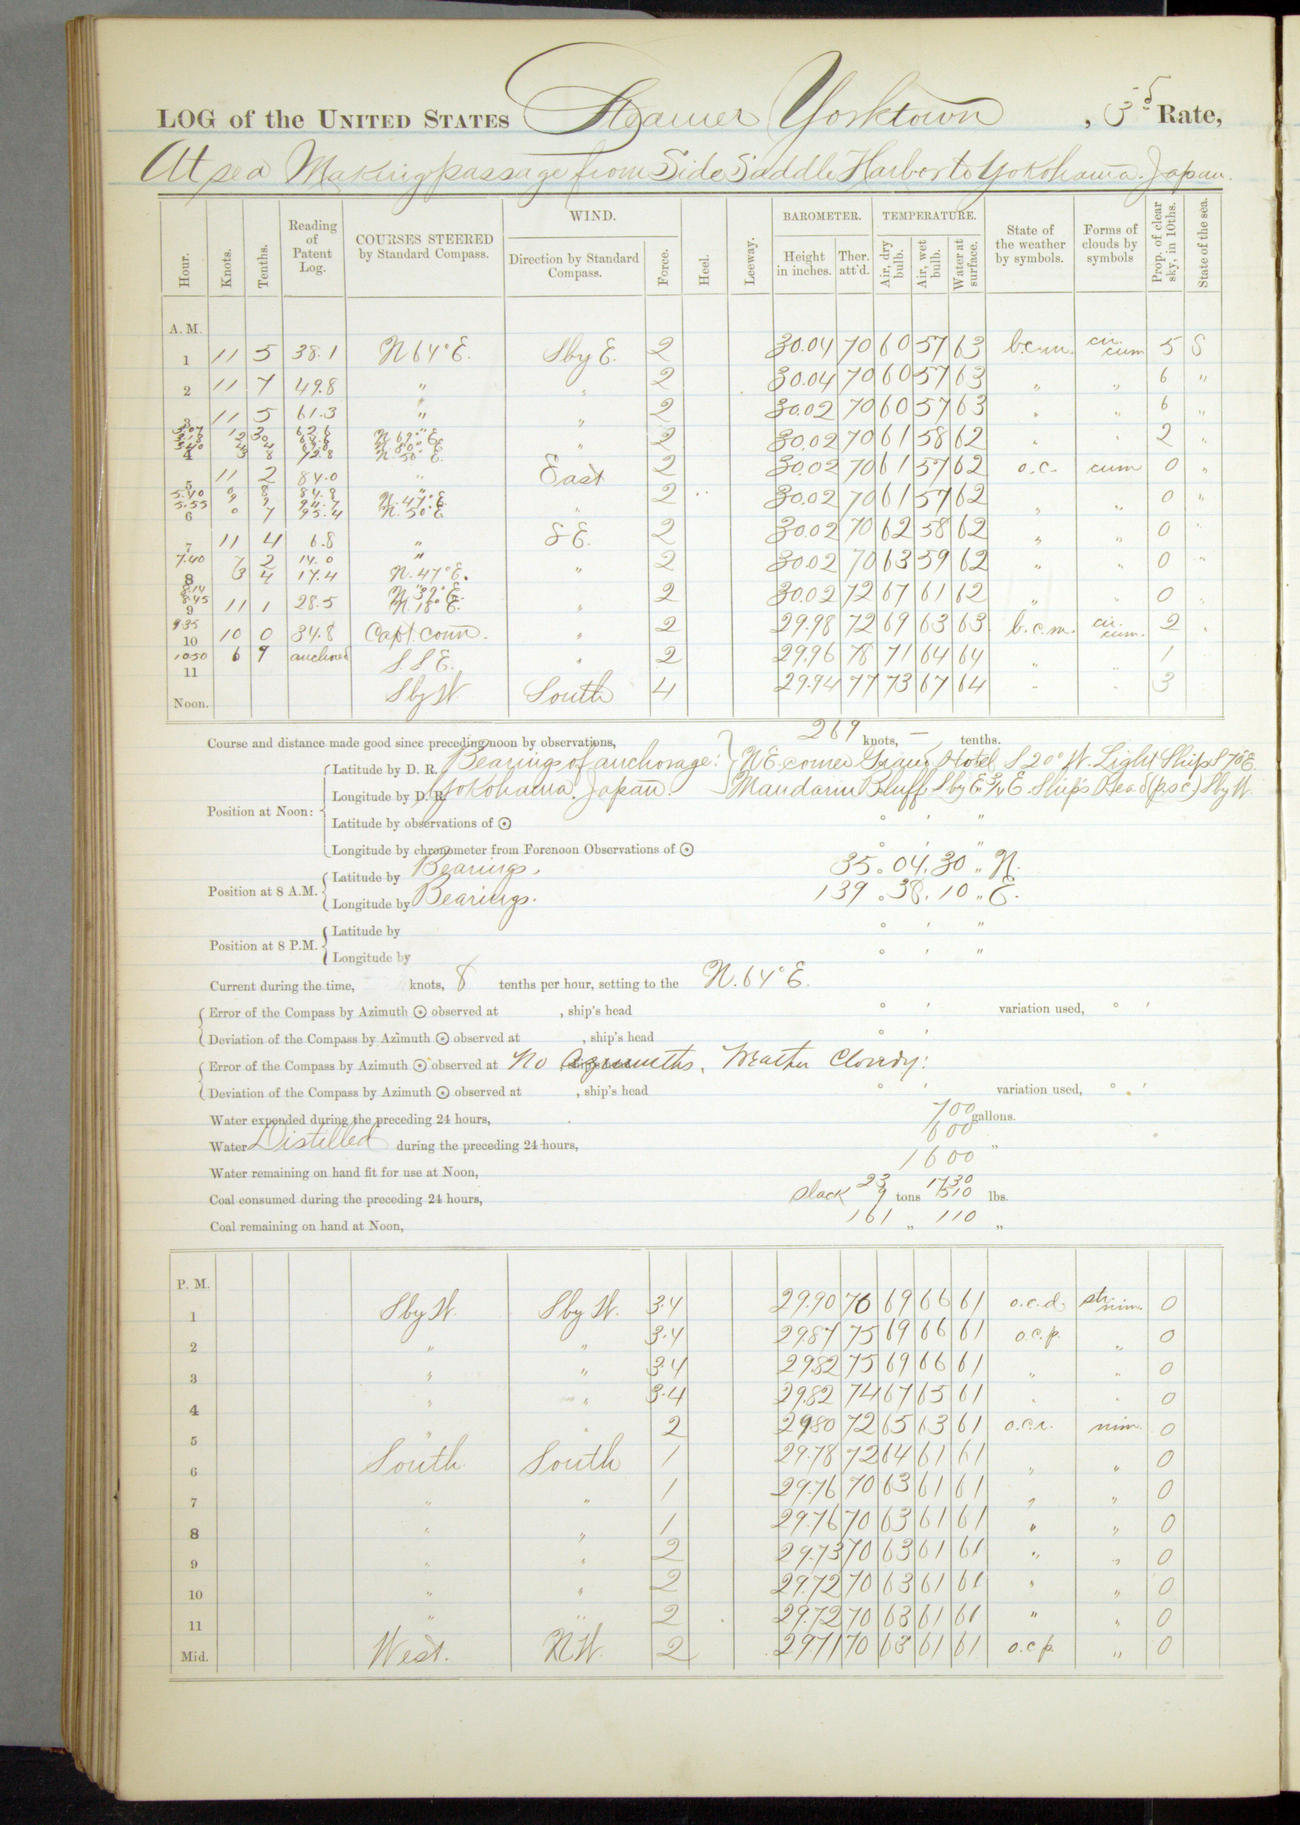 LOG of the UNITED STATES Steamer Yorktown, 3d Rate,
At sea Making passage from Side Saddle Harbor to Yokohama. Japan.
Hour. Knots. Tenths. Reading of Patent Log. COURSES STEERED by Standard Compass. WIND. Direction by Standard Compass. Force. Heel. Leeway. BAROMETER. Height in inches. Ther. att'd. TEMPERATURE. Air, dry bulb. Air, wet bulb. Water at surface. State of the weather by symbols. Forms of clouds by symbols Prop. of clear sky, in 10ths. State of the sea.
A. M.
1 11 5 38.1 N 64° E. S by E. 2 30.04 70 60 57 63 b.c.m. cir. cum 5 S
2 11 7 49.8 " " 2 30.04 70 60 57 63 " " 6 "
3 11 5 61.3 " " 2 30.02 70 60 57 63 " " 6 "
4 N. 50° E. " 2 30.02 70 61 58 62 " " 2 "
5 11 2 84.0 " East 2 30.02 70 61 57 62 o.c. cum 0 "
5.40 84.8 "
5.55 N. 47° E.
6 0 7 95.4 N. 50° E. " 2 30.02 70 61 57 62 " " 0 "
7 11 4 6.8 " S E. 2 30.02 70 62 58 62 " " 0 "
7.40 7 2 14.0 "
8 3 4 17.4 N. 47° E. " 2 30.02 70 63 59 62 " " 0 "
8.14 N. 32° E.
8.45
9 11 1 28.5 N. 18° E. " 2 30.02 72 67 61 62 " " 0 "
9 35
10 10 0 34.8 Capt. conn. " 2 29.98 72 69 63 63 b.c.m. cir. cum. 2 "
10 50 6 9 anchored
11 S. S E. " 2 29.96 78 71 64 64 " " 1
Noon. S by W South 4 29.94 77 73 67 64 " " 3
Course and distance made good since preceding noon by observations, 269 knots, — tenths.
Position at Noon: Latitude by D. R. Bearings of anchorage: N E corner Grand Hotel S 20° W. Light Ship S 70° E
Longitude by D. R. Yokohama. Japan. Mandarin Bluff S by E ¾ E Ship's Head (p s c) S by W.
Latitude by observations of ☉ ° ' "
Longitude by chronometer from Forenoon Observations of ☉ ° ' "
Position at 8 A.M. Latitude by Bearings. 35 ° 04 ' 30 " N.
Longitude by Bearings. 139 ° 38 ' 10 " E.
Position at 8 P.M. Latitude by ° ' "
Longitude by ° ' "
Current during the time, knots, 8 tenths per hour, setting to the N. 64° E.
Error of the Compass by Azimuth ☉ observed at , ship's head ° ' variation used, ° '
Deviation of the Compass by Azimuth ☉ observed at , ship's head ° '
Error of the Compass by Azimuth ☉ observed at No Azimuths, Weather Cloudy:
Deviation of the Compass by Azimuth ☉ observed at , ship's head ° ' variation used, ° '
Water expended during the preceding 24 hours, 700 gallons.
Water Distilled during the preceding 24 hours, 600 "
Water remaining on hand fit for use at Noon, 1600
Coal consumed during the preceding 24 hours, 23 1730
slack 9 tons 510 lbs.
Coal remaining on hand at Noon, 161 " 110 "
P. M.
1 S by W. S by W. 3.4 29.90 76 69 66 61 o.c.d. str. nim. 0
2 " " 3.4 29.87 75 69 66 61 o.c.p. " 0
3 " " 3.4 29.82 75 69 66 61 " " 0
4 " " 3.4 29.82 74 67 65 61 " " 0
5 " " 2 29.80 72 65 63 61 o.c.r. nim. 0
6 South South 1 29.78 72 64 61 61 " " 0
7 " " 1 29.76 70 63 61 61 " " 0
8 " " 1 29.76 70 63 61 61 " " 0
9 " " 2 29.73 70 63 61 61 " " 0
10 " " 2 29.72 70 63 61 61 " " 0
11 " " 2 29.72 70 63 61 61 " " 0
Mid. West. N W. 2 29.71 70 63 61 61 o.c.p. " 0